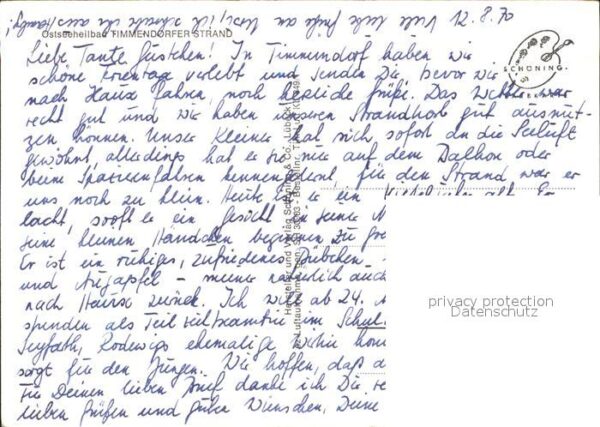 12.8.70
Viele liebe Grüße an
Ostseeheilbad TIMMENDORFER STRAND
Liebe Tante Gustchen! In Timmendorf haben wir
schöne Ferientage verlebt und senden Dir, bevor wir
nach Hause fahren, noch herzliche Grüße. Das Wetter war
recht gut und wir haben unseren Strandkorb gut ausnut-
zen können. Unser Kleiner hat sich sofort an die Seeluft
gewöhnt, allerdings hat er sie nur auf dem Balkon oder
beim Spazierenfahren kennengelernt, für den Strand war er
uns noch zu klein. Heute ist er ein alt. Er
lacht, sooft er ein Gesicht seine
seine kleinen Händchen beginnen zu
Er ist ein ruhiges, zufriedenes Bübchen
und Augapfel – meiner natürlich auch
nach Hause zurück. Ich will ab 24.
als im Schul
Seyfath, Rodewigs ehemalige
sorgt für den Jungen. Wir hoffen, daß
Für Deinen lieben Brief danke ich Dir
lieben Grüßen und guten Wünschen, Deine
SCHÖNING
Hersteller und Verlag Schöning & Co., Lübeck
privacy protection
Datenschutz